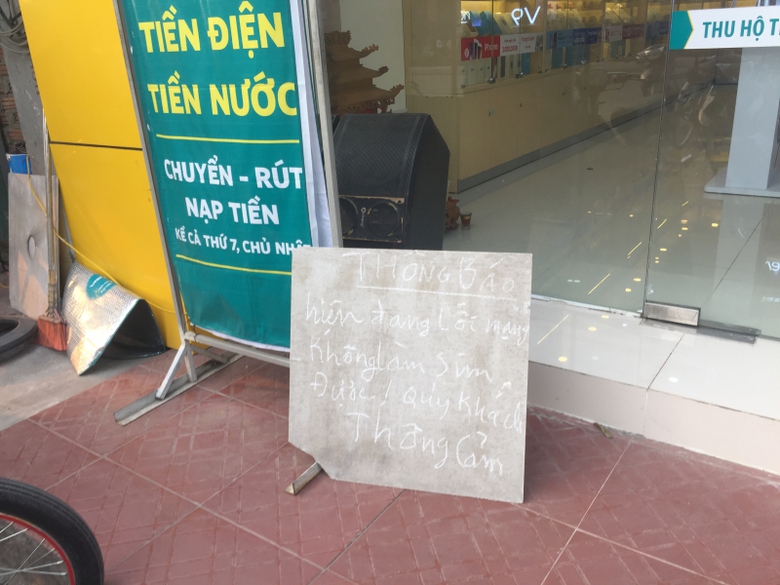 TIỀN ĐIỆN
TIỀN NƯỚC
CHUYỂN - RÚT
NẠP TIỀN
KỂ CẢ THỨ 7, CHỦ NHẬ
THU HỘ T
THÔNG BÁO
hiện đang lỗi mạng
không làm sim
Được! Qúy khách
Thông Cảm